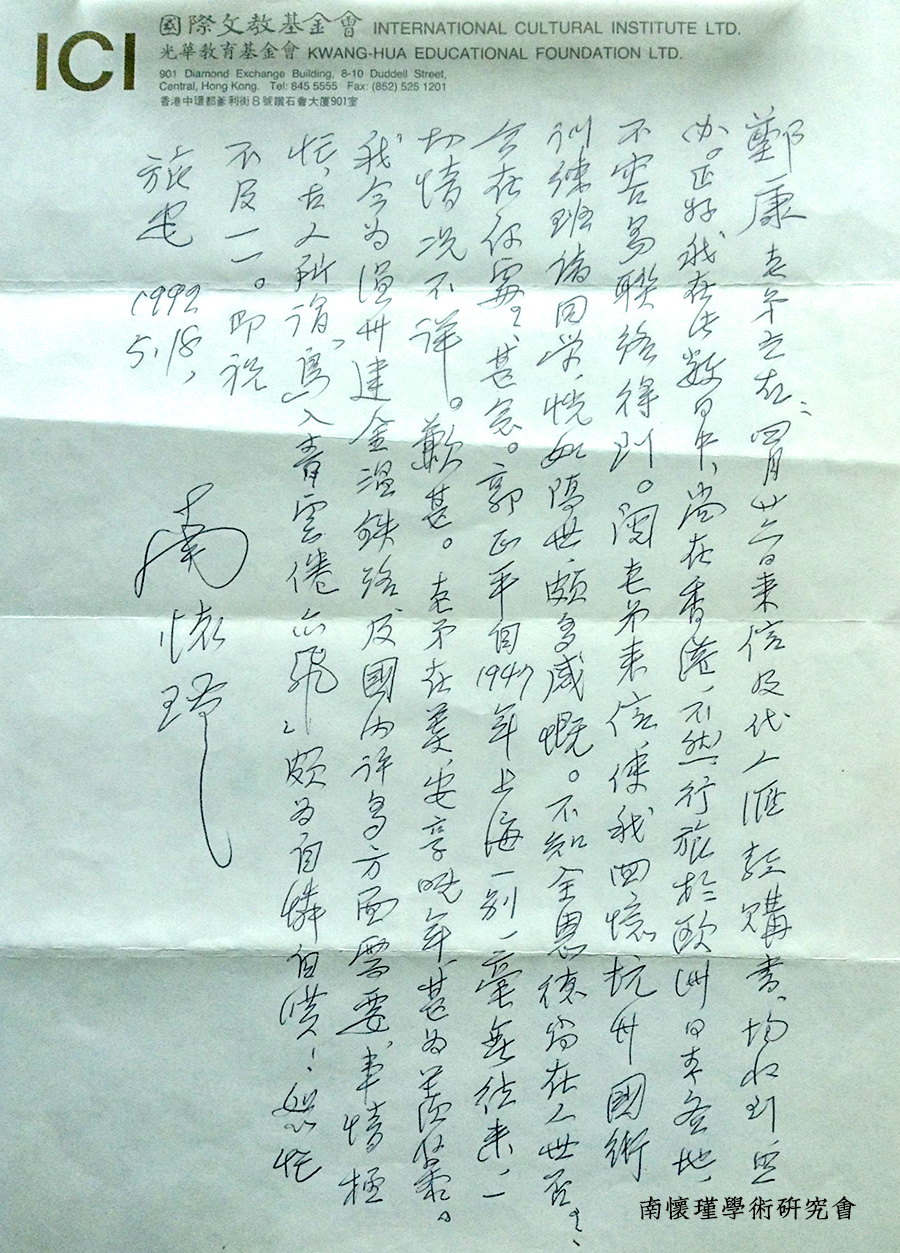 ICI
國際文教基金會 INTERNATIONAL CULTURAL INSTITUTE LTD.
光華教育基金會 KWANG-HUA EDUCATIONAL FOUNDATION LTD.
901 Diamond Exchange Building, 8-10 Duddell Street,
Central, Hong Kong. Tel: 845 5555 Fax: (852) 525 1201
香港中環都爹利街8號鑽石會大廈901室
鄭康老弟左右：四月廿六日来信及代人匯款購書、均收到照
办。正好我在此數日中、尚在香港、不然、行旅於欧洲日本各地、
不容易聯络得到。閱老弟来信、使我回憶杭州國術
训練班諸同学、恍如隔世、颇多感慨。不知全恩德尚在人世否？、
今在何處？、甚念。郭正平自1947年上海一别、毫無往来、一
切情况不詳。歉甚。老弟在美、安享晚年、甚为羡慕。
我今为温州建金温鉄路及國内许多方面需要、事情極
忙、古人所謂、鳥入青雲倦亦飛、颇为自憐自笑！匆忙
不及一一。即祝
旅安 1992
5.18、
南懷瑾
南懷瑾學術研究會